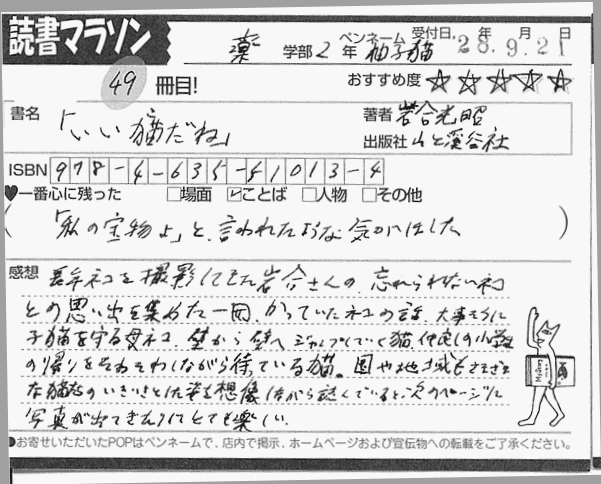 読書マラソン
薬 学部 2 年 ペンネーム 柚子猫 受付日. 28年 9月 21日
49 冊目!
おすすめ度 ☆☆☆☆☆
書名 「いい猫だね」
著者 岩合光昭
出版社 山と溪谷社
ISBN 978-4-635-51013-4
♥一番心に残った □場面 ☑ことば □人物 □その他
(「私の宝物よ」と、言われたような気がしました)
感想 長年ネコを撮影してきた岩合さんの、忘れられないネコ
との思い出を集めた一冊、かっていたネコの話、大事そうに
子猫を守る母ネコ、壁から壁へジャンプしていく猫、仲良しの小学生
の帰りをそわそわしながら待っている猫。国や地域もさまざま
な猫たちのいきいきとした姿を想像しながら読んでいると、次のページに
写真が出てきたりしてとても楽しい.
●お寄せいただいたPOPはペンネームで、店内で掲示、ホームページおよび宣伝物への転載をご了承ください。